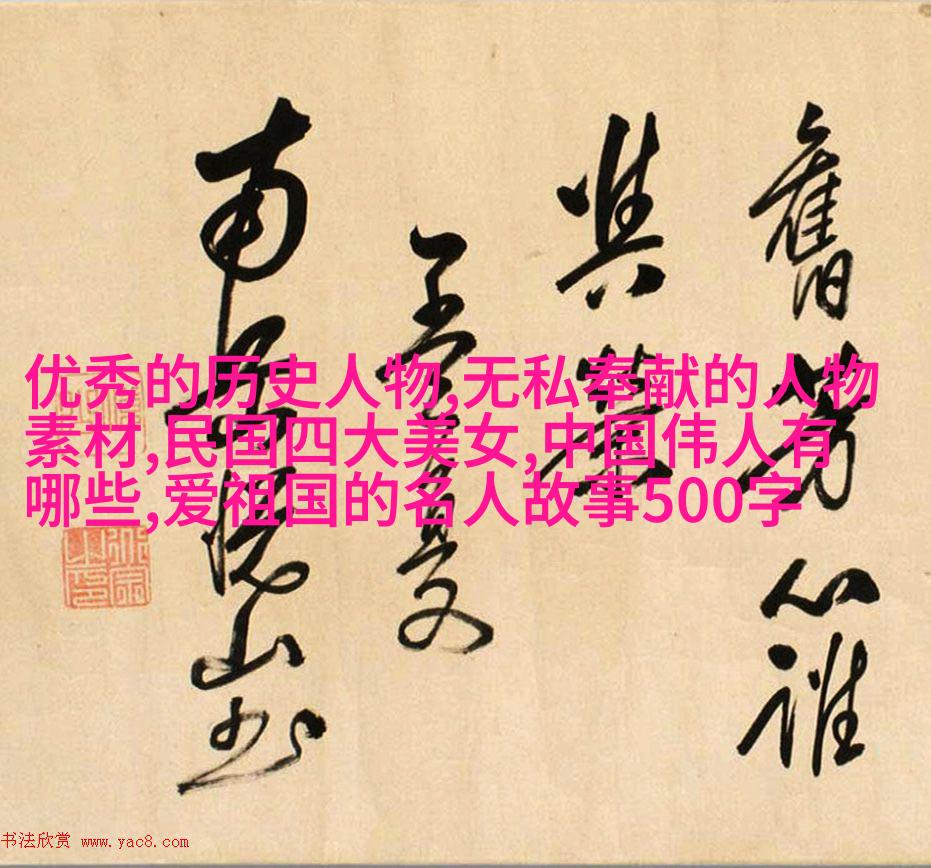 优秀的历史人物,无私奉献的人物
素材,民国四大美女,中国伟人有
哪些,爱祖国的名人故事500字
舊芳心誰
南
山书
书法欣赏 www.yac8.com